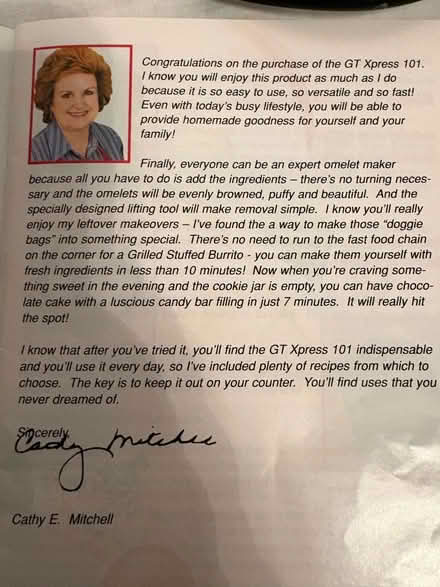 Congratulations on the purchase of the GT Xpress 101.
I know you will enjoy this product as much as I do
because it is so easy to use, so versatile and so fast!
Even with today's busy lifestyle, you will be able to
provide homemade goodness for yourself and your
family!
Finally, everyone can be an expert omelet maker
because all you have to do is add the ingredients – there's no turning neces-
sary and the omelets will be evenly browned, puffy and beautiful. And the
specially designed lifting tool will make removal simple. I know you'll really
enjoy my leftover makeovers – I've found the a way to make those "doggie
bags" into something special. There's no need to run to the fast food chain
on the corner for a Grilled Stuffed Burrito - you can make them yourself with
fresh ingredients in less than 10 minutes! Now when you're craving some-
thing sweet in the evening and the cookie jar is empty, you can have choco-
late cake with a luscious candy bar filling in just 7 minutes. It will really hit
the spot!
I know that after you've tried it, you'll find the GT Xpress 101 indispensable
and you'll use it every day, so I've included plenty of recipes from which to
choose. The key is to keep it out on your counter. You'll find uses that you
never dreamed of.
Sincerely,
Cathy Mitchell
Cathy E. Mitchell